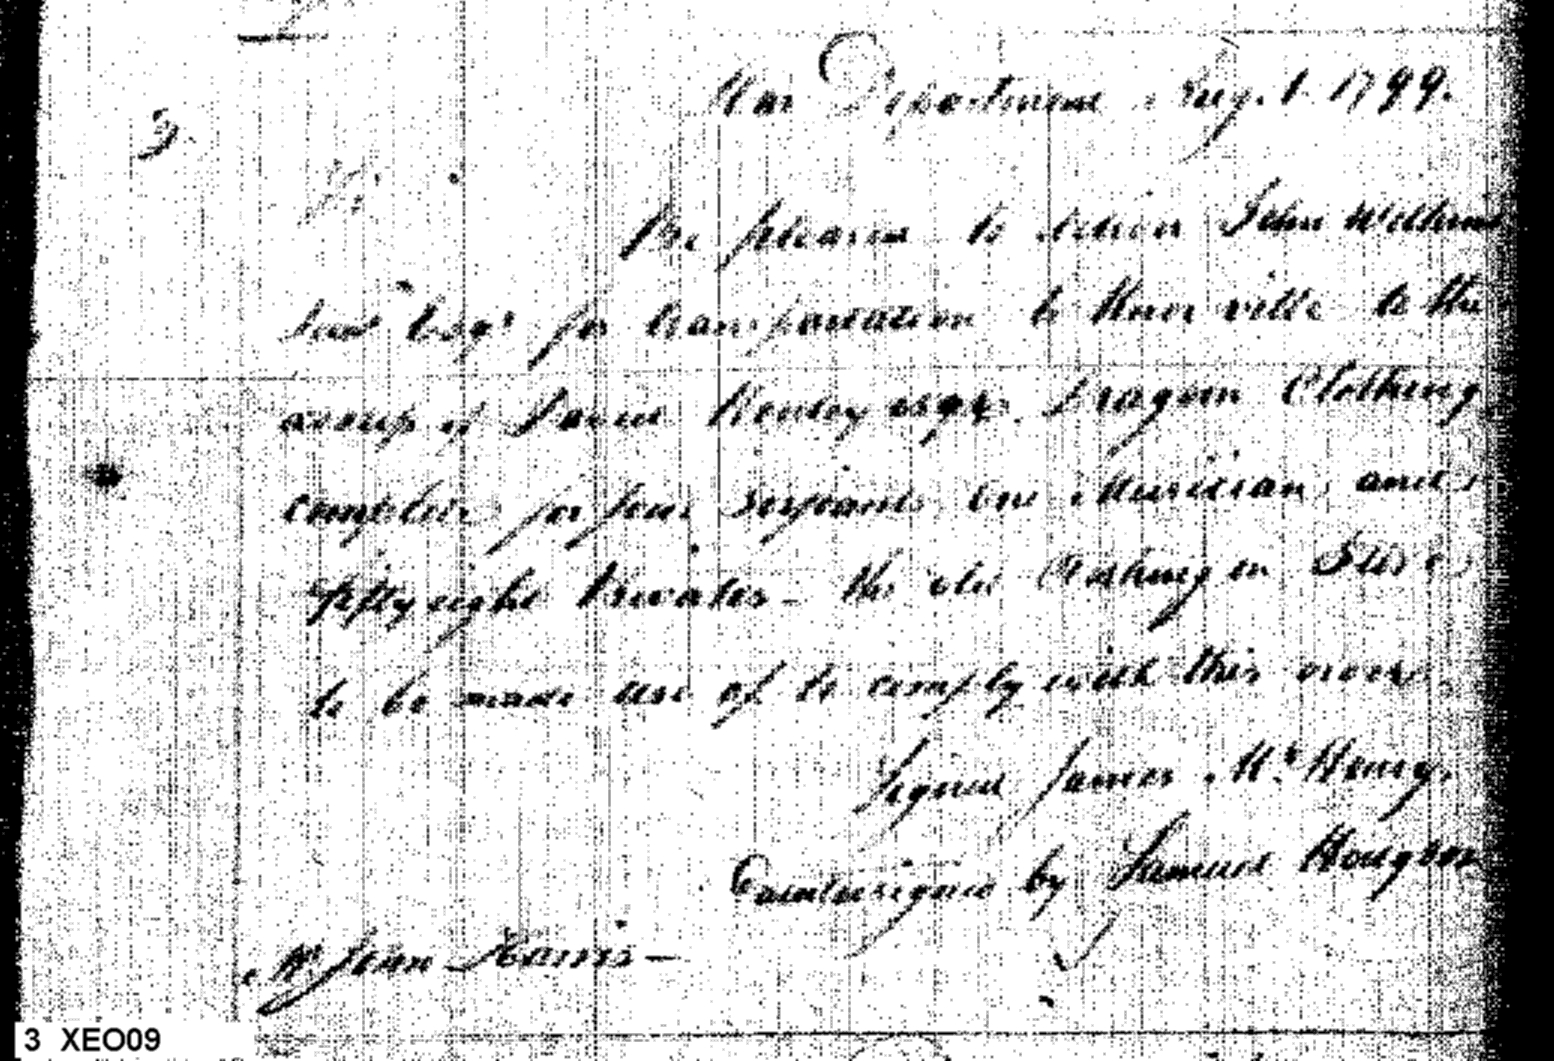 War Department Aug. 1. 1799.
3.
Be pleased to deliver John Williams
Esqr for transportation to Knoxville to the
order of David Henley esqr. Dragoon Clothing
complete for four Serjeants one Musician, and
fifty eight Privates - the old Clothing in Store
to be made use of to comply with this order.
Signed James McHenry.
Countersigned by Samuel Hodgson
Mr John Harris -
3 XEO09